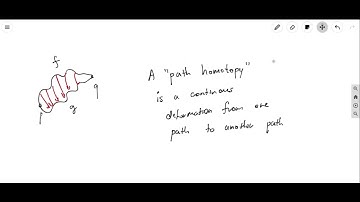 f
A "path homotopy"
q
is a continuous
g
deformation from one
p
path to another path